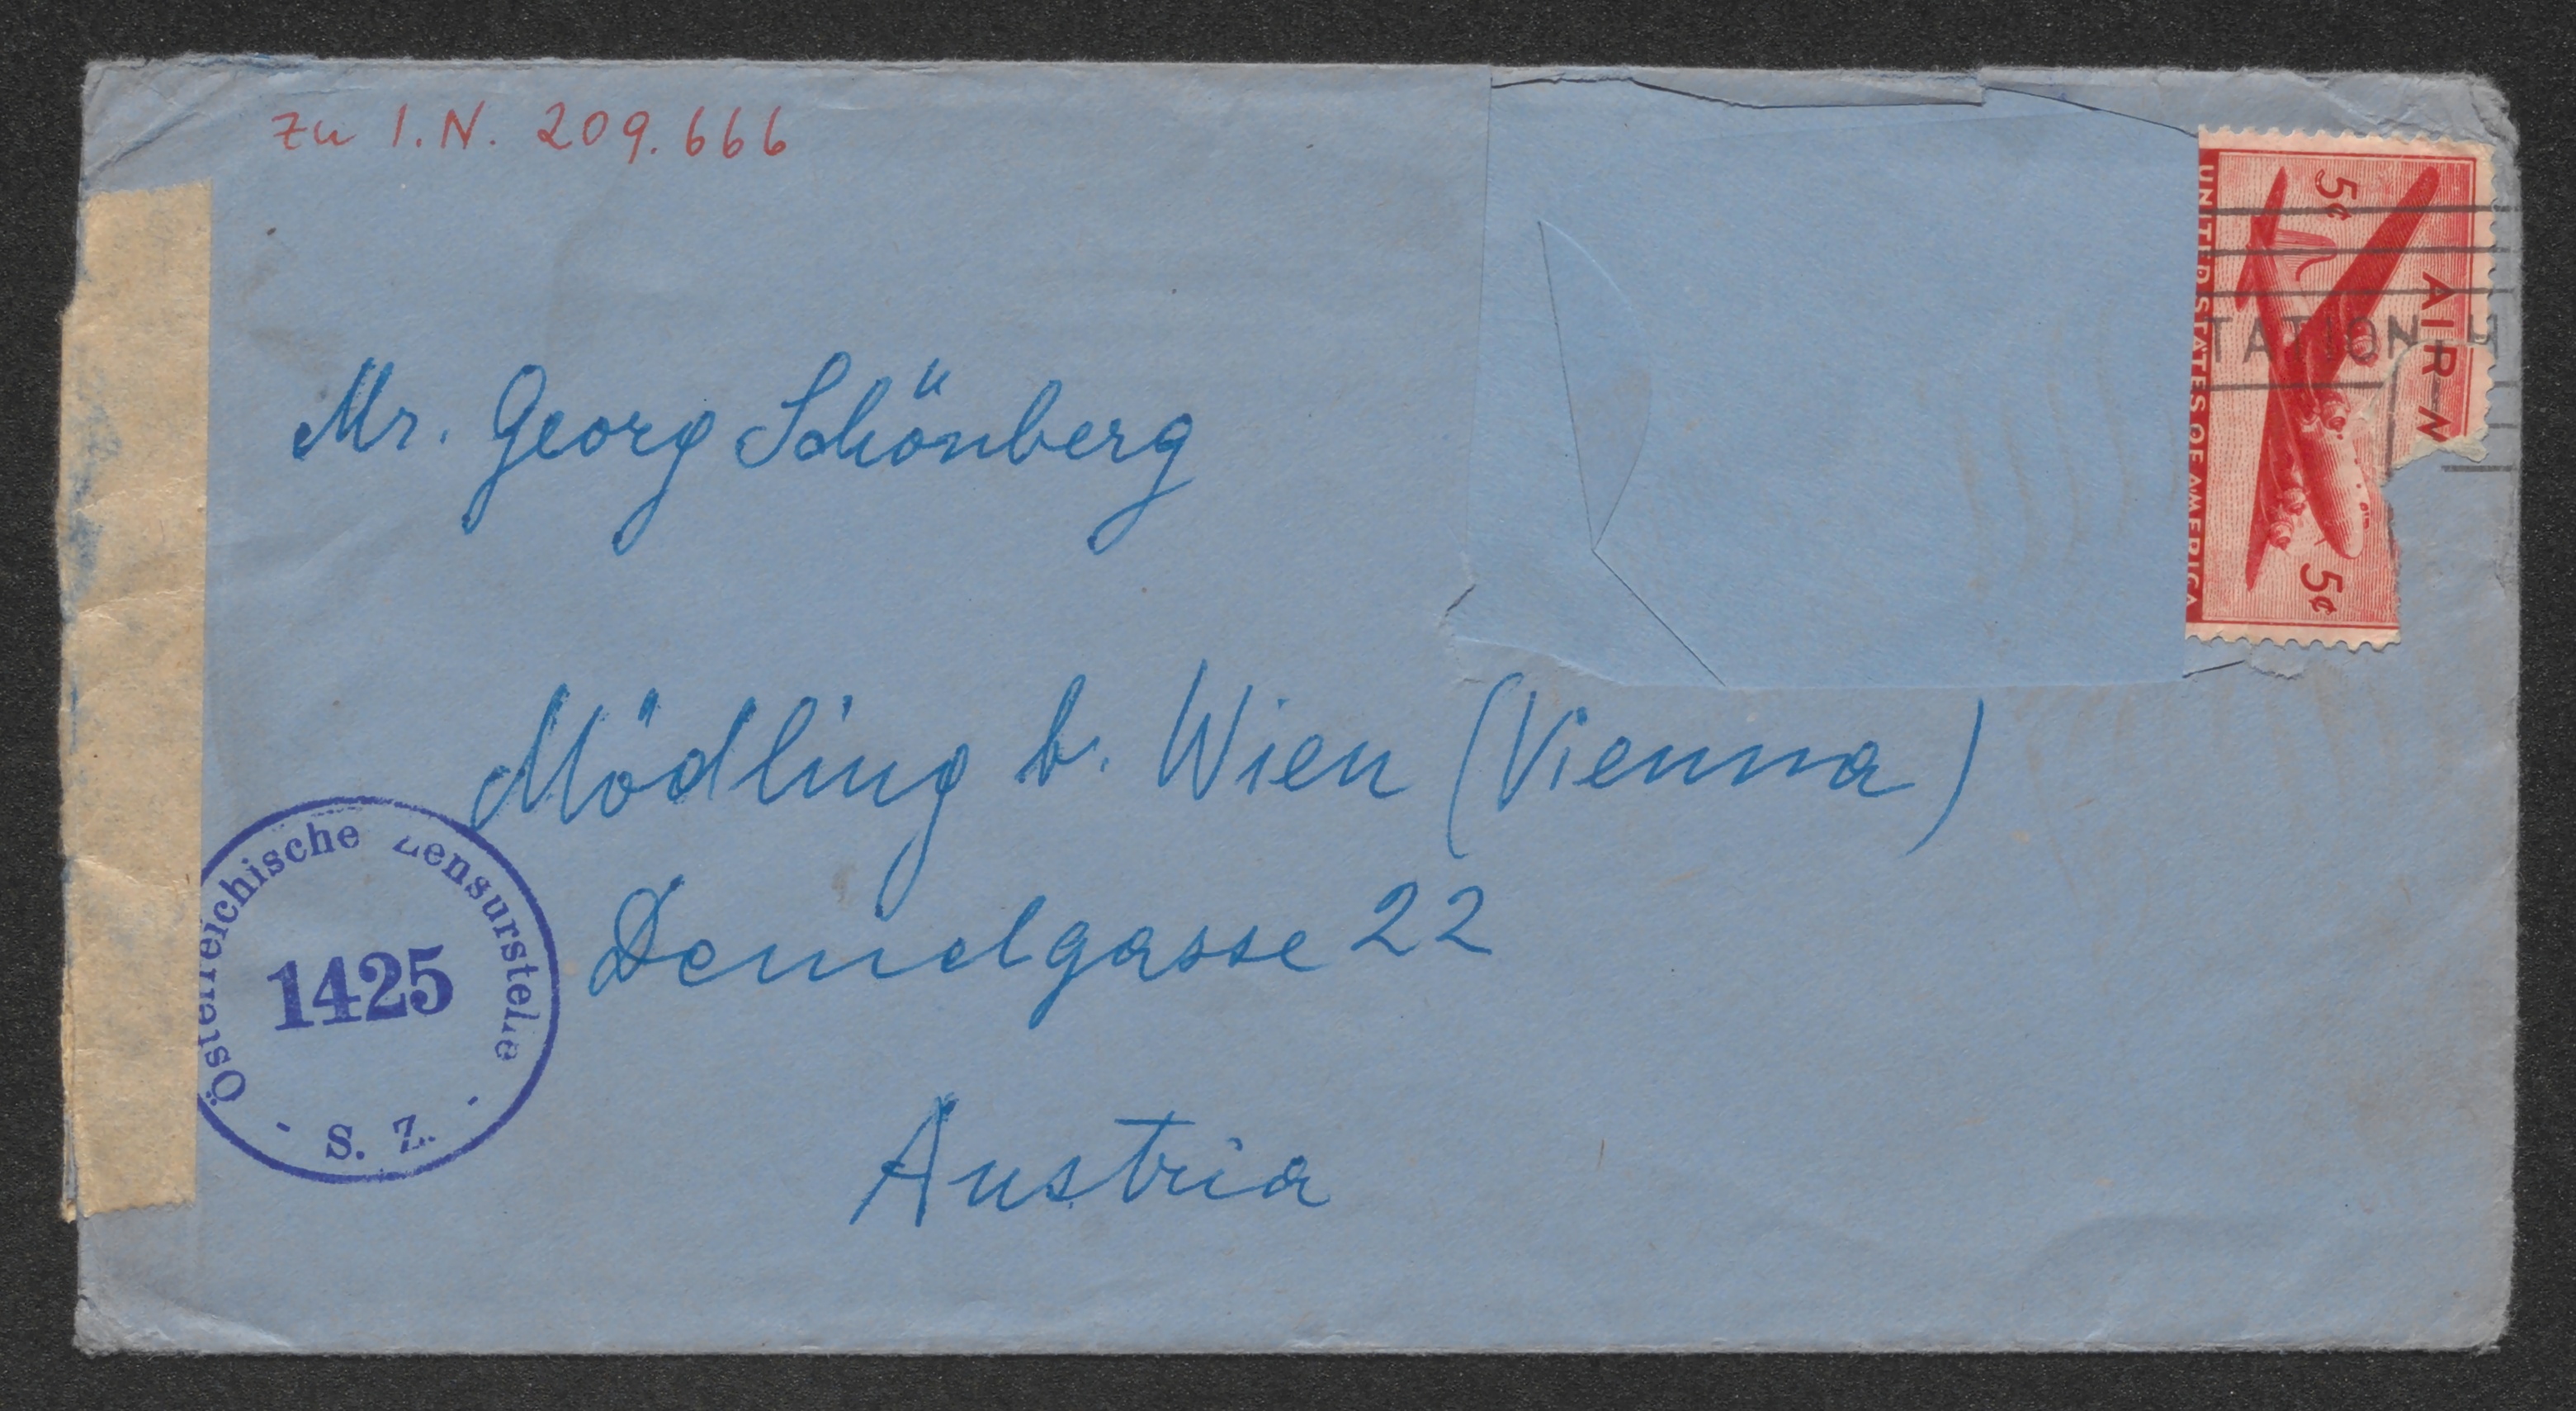 zu I.N. 209.666
5¢
AIR M
TATION H
UNITED STATES OF AMERICA
5¢
Mr. Georg Schönberg
Mödling b. Wien (Vienna)
Demelgasse 22
Austria
Österreichische Zensurstelle
1425
- S. Z. -